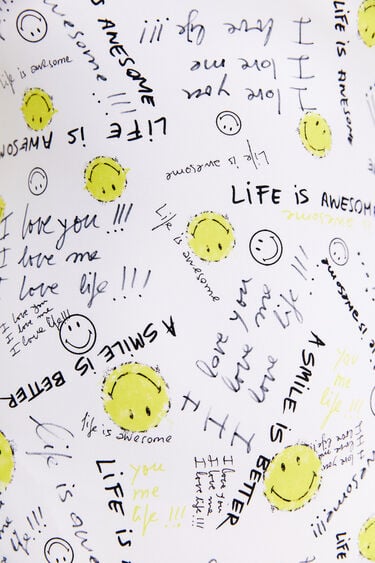 IS AWESOME
LIFE IS AWESOME
awesome !!!
I love life !!!
I love me
I love you
Life is awesome
LIFE IS AWESOME
Life is awesome
LIFE IS AWESOME
awesome
I love you !!!
I love me
I love life !!!
Life is awesome
I love you
I love me
I love life!!!
is awesome
A SMILE IS BETTER
I love you
I love me
I love life
A SMILE IS BETTER
you
me
life !!!
Life is awesome
Life is awesome
LIFE IS
you
me
life !!!
I love you
I love me
I love life !!!
I love you
I love me
I love life
awesome!!!